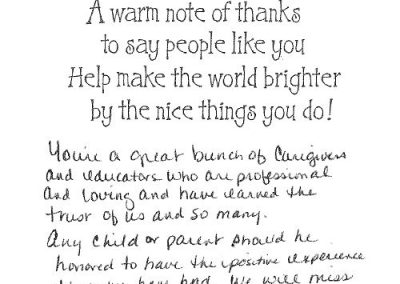 A warm note of thanks
to say people like you
Help make the world brighter
by the nice things you do!
You're a great bunch of Caregivers
and educators who are professional
and loving and have earned the
trust of us and so many.
Any child or parent should be
honored to have the positive experience
have had. We will miss